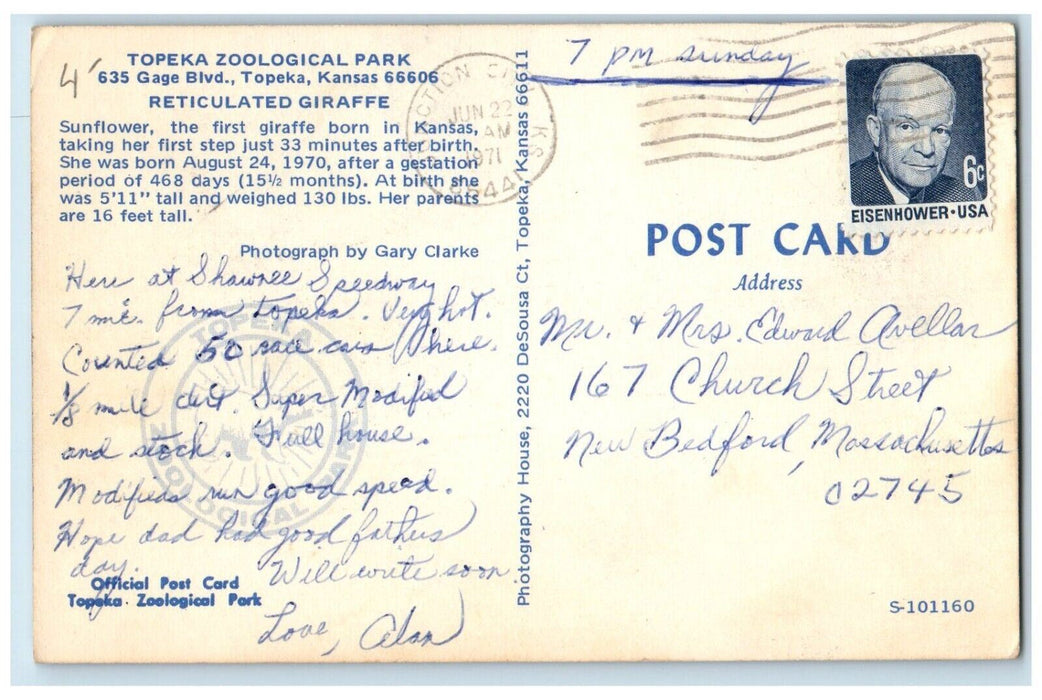 TOPEKA ZOOLOGICAL PARK
635 Gage Blvd., Topeka, Kansas 66606
RETICULATED GIRAFFE
Sunflower, the first giraffe born in Kansas,
taking her first step just 33 minutes after birth.
She was born August 24, 1970, after a gestation
period of 468 days (15½ months). At birth she
was 5'11" tall and weighed 130 lbs. Her parents
are 16 feet tall.
Photograph by Gary Clarke
4'
Here at Shawnee Speedway
7 mi. from Topeka. Very hot.
Counted 50 race cars here.
1/3 mile dirt. Super Modified
and stock. Full house.
Modifieds run good speed.
Hope dad had good fathers
day. Will write soon.
Love, Alan
Official Post Card
Topeka Zoological Park
TOPEKA
ZOOLOGICAL PARK
Photography House, 2220 DeSousa Ct, Topeka, Kansas 66611
JUNCTION CITY KS
JUN 22
AM
1971
66441
7 pm sunday
6c
EISENHOWER·USA
POST CARD
Address
Mr. & Mrs. Edward Avellar
167 Church Street
New Bedford, Massachusetts
02745
S-101160